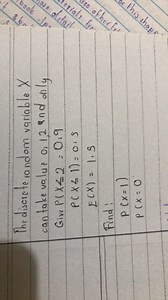 The discrete random variable X
can take value 0, 1, 2 and only
Give P(X≤2 = 0.9
P(X≤1) = 0.5
E(X) = 1.5
Find:
P(X=1)
P(X=0